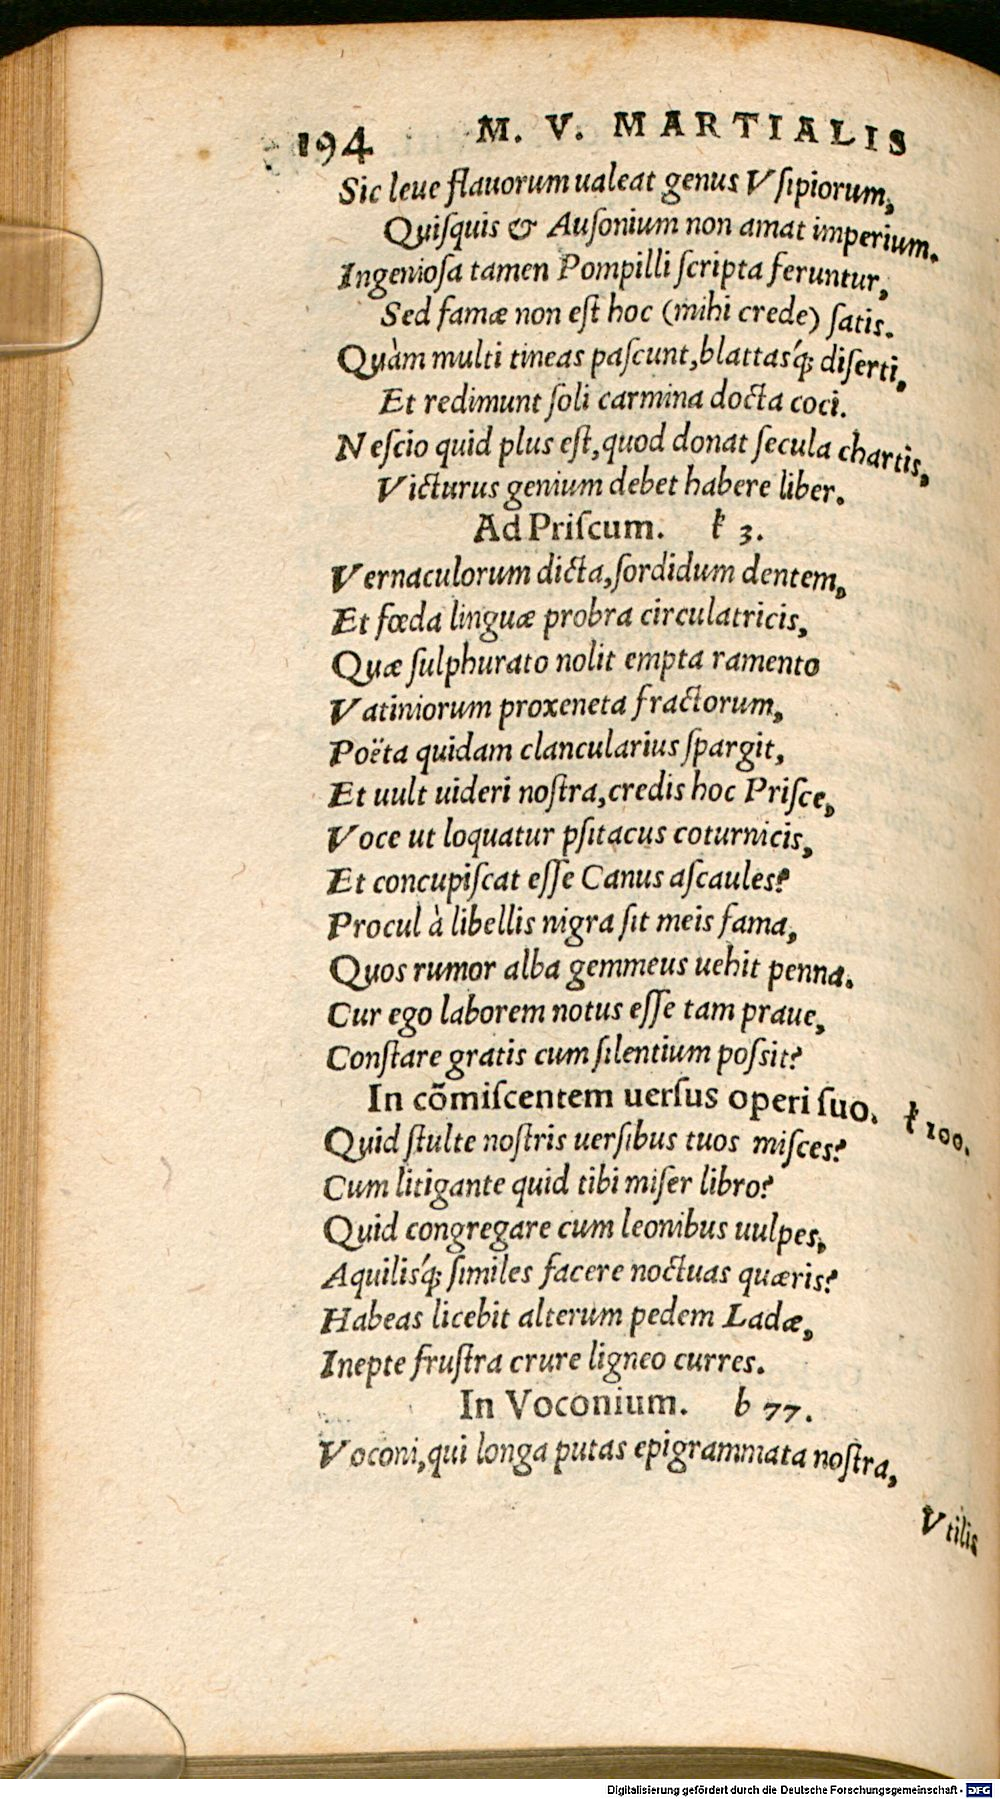 194 M. V. MARTIALIS
Sic leue flauorum ualeat genus Vsipiorum,
Quisquis & Ausonium non amat imperium.
Ingeniosa tamen Pompilli scripta feruntur,
Sed famæ non est hoc (mihi crede) satis.
Quàm multi tineas pascunt, blattasq́; diserti,
Et redimunt soli carmina docta coci.
Nescio quid plus est, quod donat secula chartis,
Victurus genium debet habere liber.
Ad Priscum. k 3.
Vernaculorum dicta, sordidum dentem,
Et fœda linguæ probra circulatricis,
Quæ sulphurato nolit empta ramento
Vatiniorum proxeneta fractorum,
Poëta quidam clancularius spargit,
Et uult uideri nostra, credis hoc Prisce,
Voce ut loquatur psitacus coturnicis,
Et concupiscat esse Canus ascaules?
Procul à libellis nigra sit meis fama,
Quos rumor alba gemmeus uehit penna.
Cur ego laborem notus esse tam praue,
Constare gratis cum silentium possit?
In cõmiscentem uersus operi suo. k 100.
Quid stulte nostris uersibus tuos misces?
Cum litigante quid tibi miser libro?
Quid congregare cum leonibus uulpes,
Aquilisq́; similes facere noctuas quæris?
Habeas licebit alterum pedem Ladæ,
Inepte frustra crure ligneo curres.
In Voconium. b 77.
Voconi, qui longa putas epigrammata nostra,
Vtilis
Digitalisierung gefördert durch die Deutsche Forschungsgemeinschaft - DFG